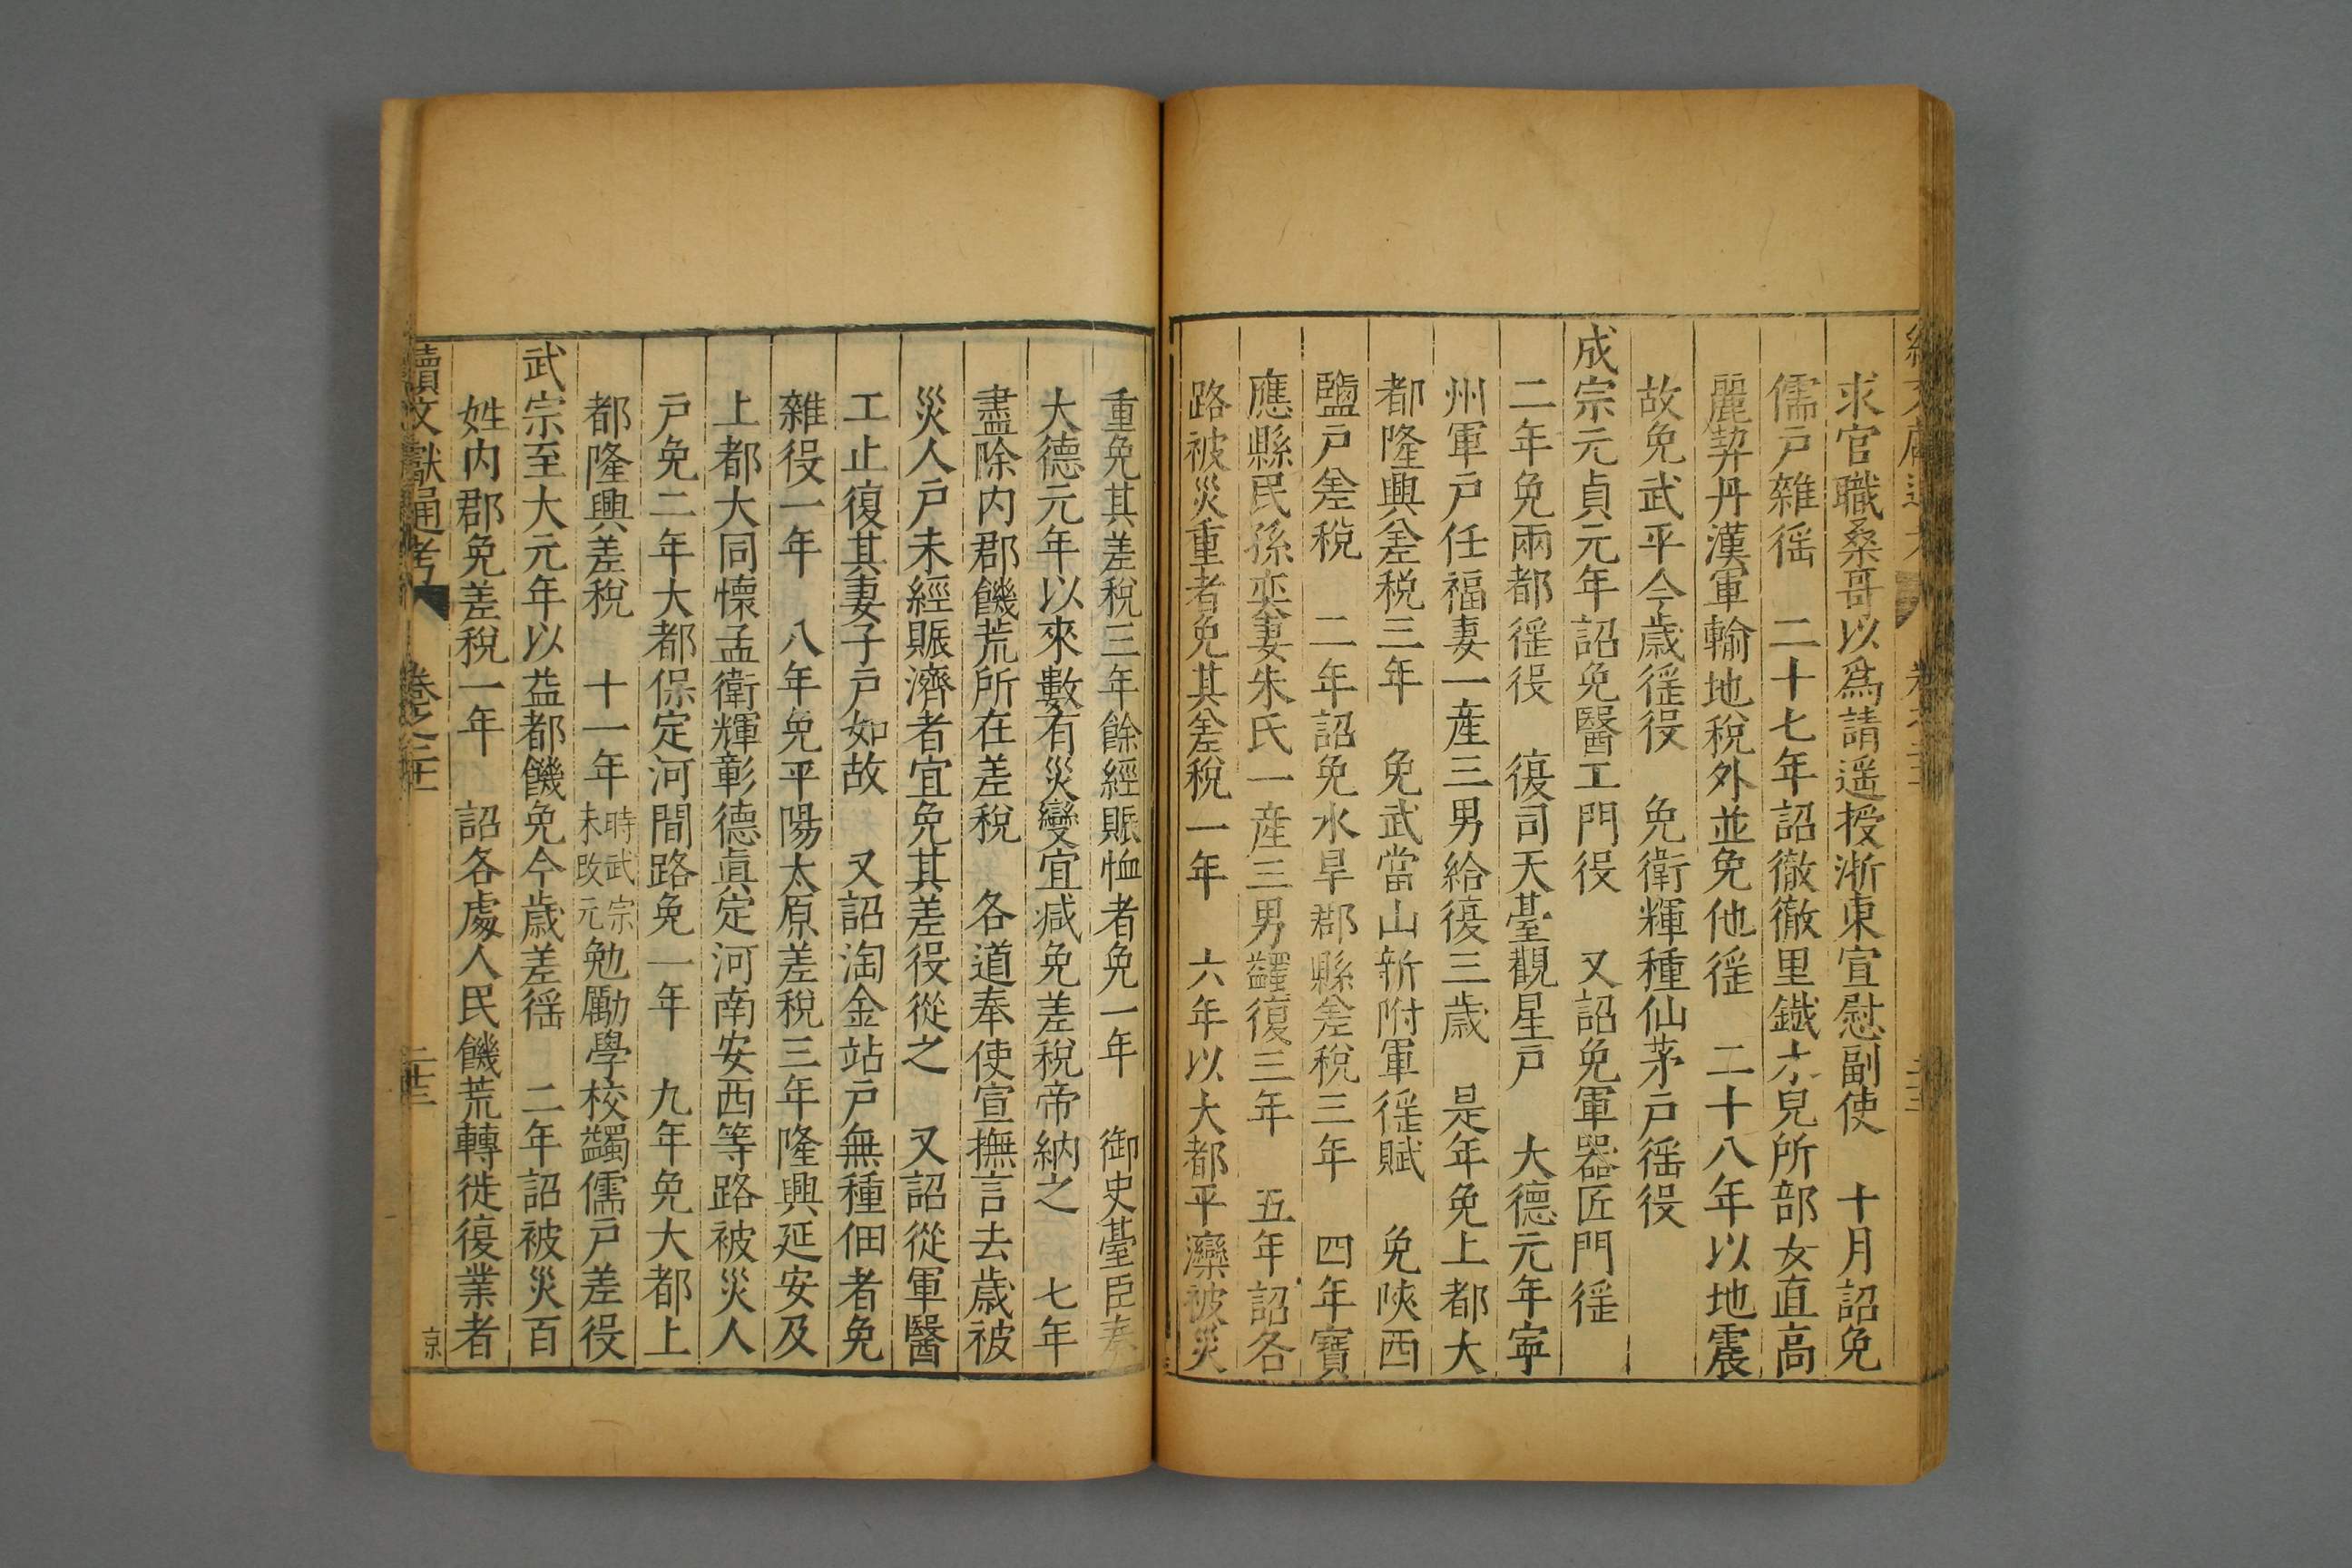 求官職桑哥以爲請遥授浙東宣慰副使　十月詔免
儒戸雜徭　二十七年詔徹徹里鐵木兒所部女直高
麗契丹漢軍輸地稅外並免他徭　二十八年以地震
故免武平今歳徭役　免衛輝種仙茅戸徭役
成宗元貞元年詔免醫工門役　又詔免軍器匠門徭
二年免兩都徭役　復司天臺觀星戸　大德元年寧
州軍戸任福妻一産三男給復三歳　是年免上都大
都隆興差税三年　免武當山新附軍徭賦　免陜西
鹽戸差税　二年詔免水旱郡縣差税三年　四年寶
應縣民孫奕妻朱氏一産三男蠲復三年　五年詔各
路被災重者免其差税一年　六年以大都平灤被災
重免其差税三年餘經賑恤者免一年　御史臺臣奏
大德元年以來數有災變宜减免差税帝納之　七年
盡除内郡饑荒所在差税　各道奉使宣撫言去歳被
災人戸未經賑濟者宜免其差役從之　又詔從軍醫
工止復其妻子戸如故　又詔淘金站戸無種佃者免
雜役一年　八年免平陽太原差税三年隆興延安及
上都大同懷孟衛輝彰德眞定河南安西等路被災人
戸免二年大都保定河間路免一年　九年免大都上
都隆興差税　十一年時武宗未改元勉勵學校蠲儒戸差役
武宗至大元年以益都饑免今歳差徭　二年詔被災百
姓内郡免差税一年　詔各處人民饑荒轉徙復業者
續文獻通考　卷之二十　二十三　京